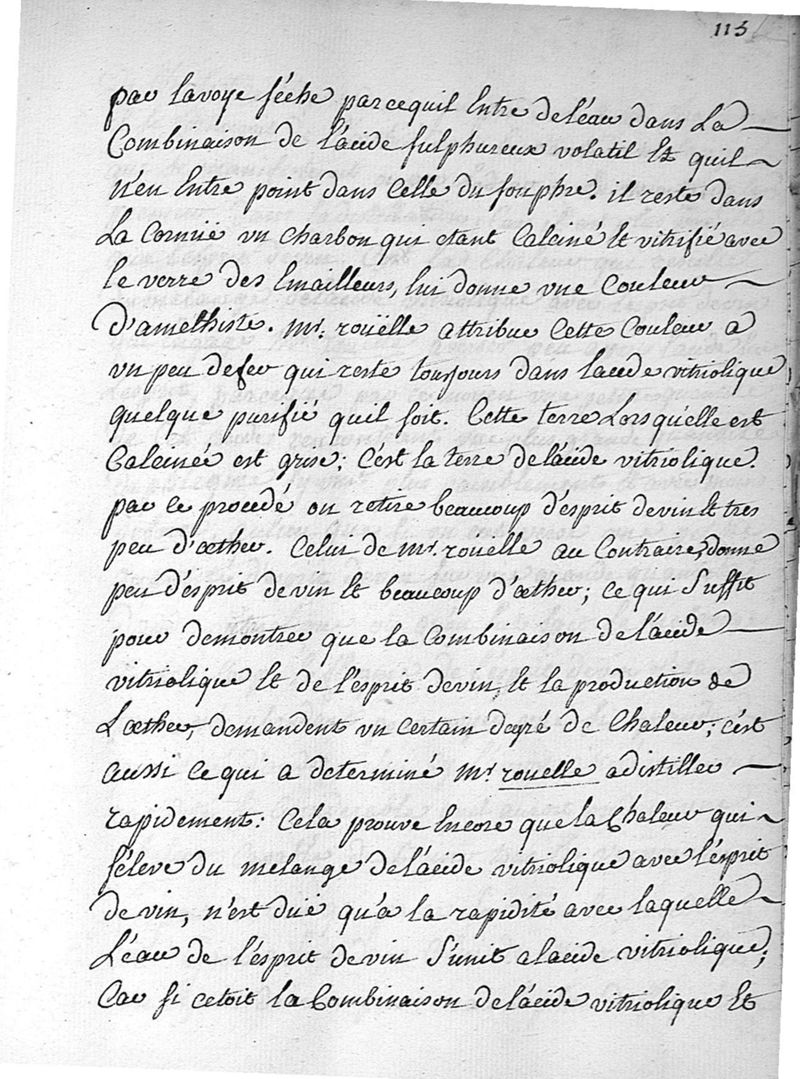 115
par la voye séche parcequil Entre de l'éau dans La
Combinaison de l'ácide sulphureux volatil Et quil
n'en Entre point dans Celle du souphre. il reste dans
La Cornüe vn charbon qui etant Calciné Et vitrifié avec
le verre des Emailleurs, lui donne vne Couleur
d'amethiste. Mr. roüelle attribue Cette Couleur a
vn peu de fer qui reste toujours dans lacide vitriolique
quelque purifié quil soit. Cette terre Lorsqu'elle est
Calcinée est grise; C'est la terre de l'ácide vitriolique.
par ce procedé on retire beaucoup d'esprit de vin Et tres
peu d'œther. Celui de Mr. rouelle au Contraire, donne
peu d'esprit de vin Et beaucoup d'œther; ce qui Suffit
pour demontrer que la Combinaison de l'ácide
vitriolique Et de l'ésprit de vin, Et la production de
L'œther, demandent vn Certain degré de Chaleur; c'ést
aussi Ce qui a determiné Mr. rouelle a distiller
rapidement: Cela prouve Encore que la Chaleur qui
s'éleve du melange de l'ácide vitriolique avec l'ésprit
de vin, n'est düe qu'a la rapidité avec laquelle
L'éau de l'ésprit de vin S'unit a lacide vitriolique;
Car si cetoit la Combinaison de l'ácide vitriolique Et